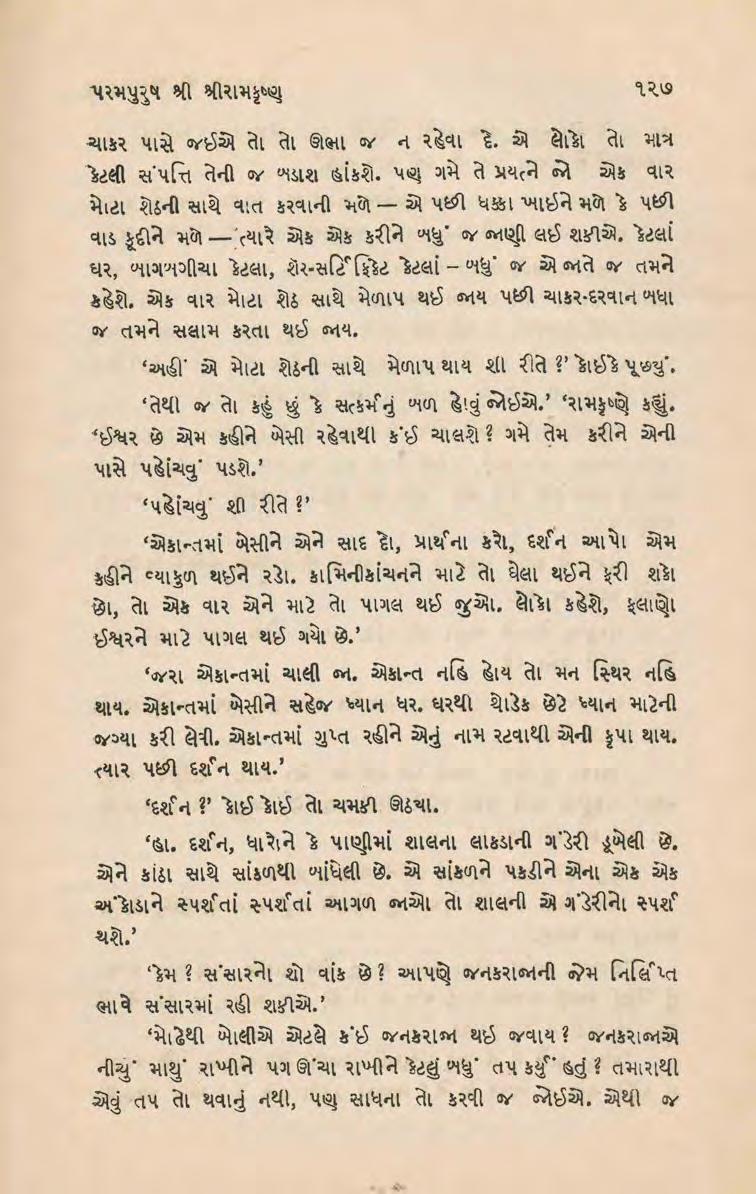 પરમપુરુષ શ્રી શ્રીરામકૃષ્ણ ૧૨૭
ચાકર પાસે જઈએ તો તો ઊભા જ ન રહેવા દે. એ લોકો તો માત્ર
કેટલી સંપત્તિ તેની જ બડાશ હાંકશે. પણ ગમે તે પ્રયત્ને જો એક વાર
મોટા શેઠની સાથે વાત કરવાની મળે — એ પછી ધક્કા ખાઈને મળે કે પછી
વાડ કૂદીને મળે — ત્યારે એક એક કરીને બધું જ જાણી લઈ શકીએ. કેટલાં
ઘર, બાગબગીચા કેટલા, શેર-સર્ટિફિકેટ કેટલાં – બધું જ એ જાતે જ તમને
કહેશે. એક વાર મોટા શેઠ સાથે મેળાપ થઈ જાય પછી ચાકર-દરવાન બધા
જ તમને સલામ કરતા થઈ જાય.
‘અહીં એ મોટા શેઠની સાથે મેળાપ થાય શી રીતે ?’ કોઈકે પૂછ્યું.
‘તેથી જ તો કહું છું કે સત્કર્મનું બળ હોવું જોઈએ.’ ‘રામકૃષ્ણે કહ્યું.
‘ઈશ્વર છે એમ કહીને બેસી રહેવાથી કંઈ ચાલશે ? ગમે તેમ કરીને એની
પાસે પહોંચવું પડશે.’
‘પહોંચવું શી રીતે ?’
‘એકાન્તમાં બેસીને એને સાદ દો, પ્રાર્થના કરો, દર્શન આપો એમ
કહીને વ્યાકુળ થઈને રડો. કામિનીકાંચનને માટે તો ઘેલા થઈને ફરી શકો
છો, તો એક વાર એને માટે તો પાગલ થઈ જુઓ. લોકો કહેશે, ફલાણો
ઈશ્વરને માટે પાગલ થઈ ગયો છે.’
‘જરા એકાન્તમાં ચાલી જા. એકાન્ત નહિ હોય તો મન સ્થિર નહિ
થાય. એકાન્તમાં બેસીને સહેજ ધ્યાન ધર. ઘરથી થોડેક છેટે ધ્યાન માટેની
જગ્યા કરી લેવી. એકાન્તમાં ગુપ્ત રહીને એનું નામ રટવાથી એની કૃપા થાય.
ત્યાર પછી દર્શન થાય.’
‘દર્શન ?’ કોઈ કોઈ તો ચમકી ઊઠ્યા.
‘હા. દર્શન, ધારોને કે પાણીમાં શાલના લાકડાની ગંડેરી ડૂબેલી છે.
એને કાંઠા સાથે સાંકળથી બાંધેલી છે. એ સાંકળને પકડીને એના એક એક
અંકોડાને સ્પર્શતાં સ્પર્શતાં આગળ જાઓ તો શાલની એ ગંડેરીનો સ્પર્શ
થશે.’
‘કેમ ? સંસારનો શો વાંક છે ? આપણે જનકરાજાની જેમ નિર્લિપ્ત
ભાવે સંસારમાં રહી શકીએ.’
‘મોઢેથી બોલીએ એટલે કંઈ જનકરાજા થઈ જવાય ? જનકરાજાએ
નીચું માથું રાખીને પગ ઊંચા રાખીને કેટલું બધું તપ કર્યું હતું ? તમારાથી
એવું તપ તો થવાનું નથી, પણ સાધના તો કરવી જ જોઈએ. એથી જ